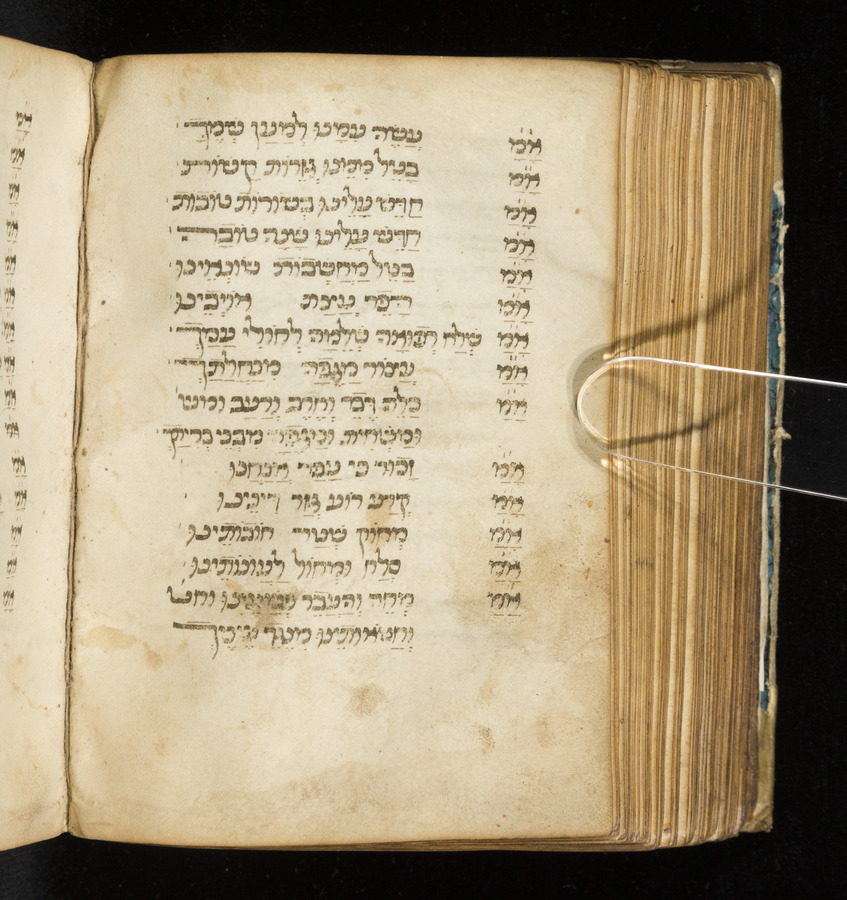 א״מ עשה עמנו למען שמך
א״מ בטל ממנו גזרות קשות
א״מ חדש עלינו בשורות טובות
א״מ חדש עלינו שנה טובה
א״מ בטל מחשבות שונאינו
א״מ הפר עצת אויבינו
א״מ שלח רפואה שלמה לחולי עמך
א״מ עצור מגפה מנחלתך
א״מ כלה דבר וחרב ורעב ומש׳
ומשחית ומגפה מבני בריתך
א״מ זכור כי עפר אנחנו
א״מ קרע רוע גזר דיננו
א״מ מחוק שטרי חובותינו
א״מ סלח ומחול לעונותינו
א״מ מחה והעבר פשעינו וחט׳
וחטאותינו מנגד עיניך